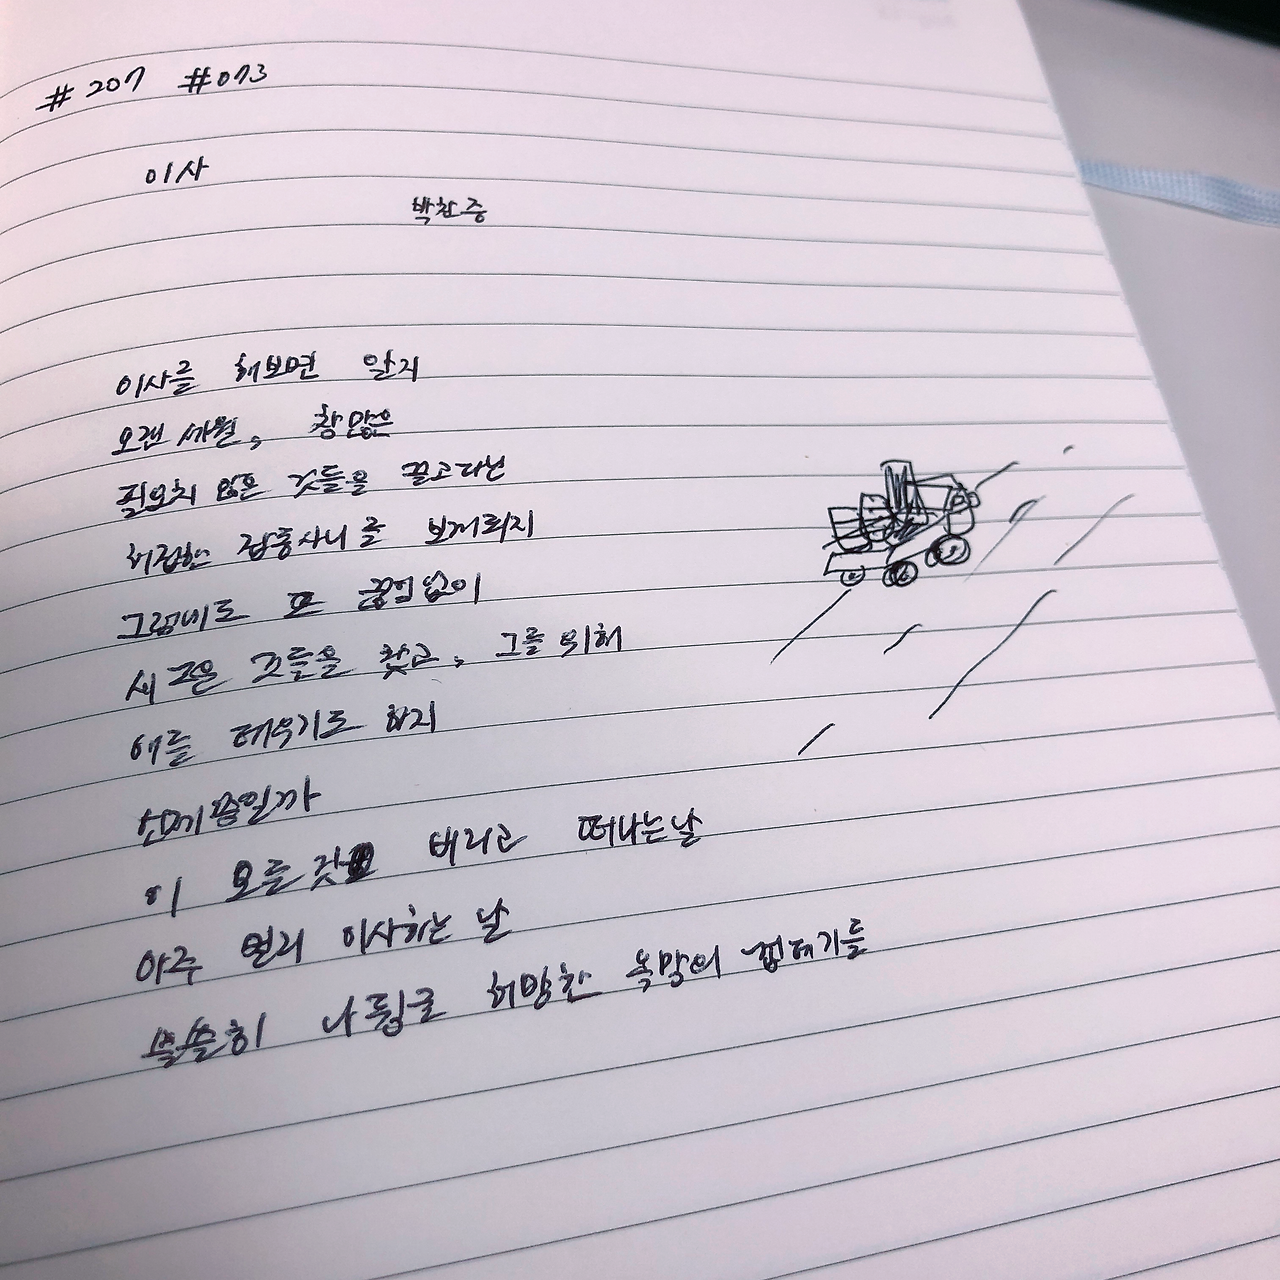 #207 #073
이사
박찬중
이사를 해보면 알지
오랜 세월, 참많은
필요치 않은 것들을 끌고다닌
허접한 잡동사니를 보게되지
그럼에도 또 끊임없이
새로운 것들을 찾고, 그를 위해
애를 태우기도 하지
언제쯤일까
이 모든것 버리고 떠나는날
아주 멀리 이사하는 날
쓸쓸히 나뒹굴 허망한 욕망의 껍데기들